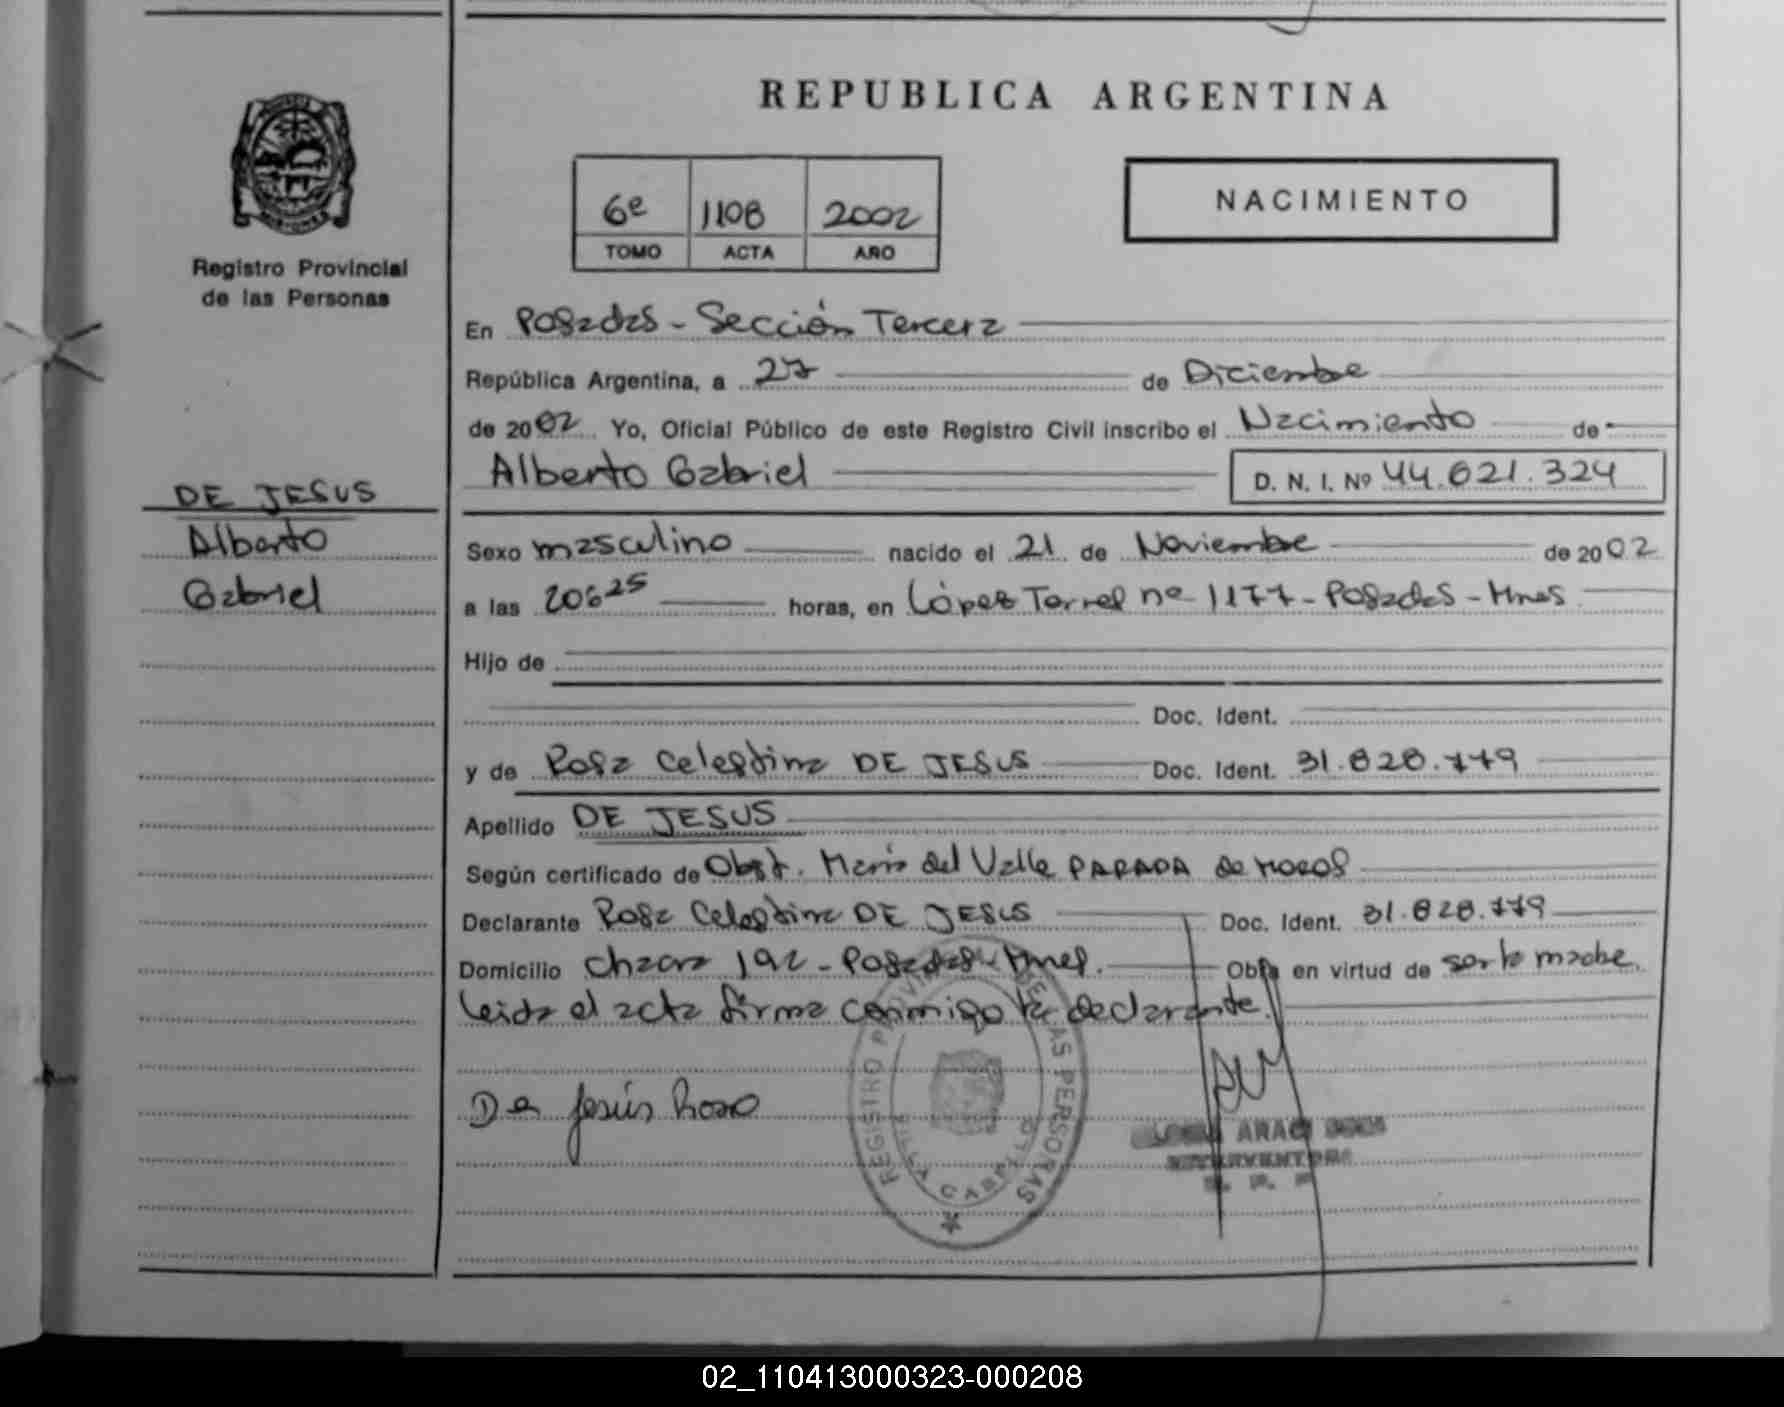 REPUBLICA ARGENTINA
Registro Provincial
de las Personas
6º 1108 2002
TOMO ACTA AÑO
NACIMIENTO
DE JESUS
Alberto
Gabriel
En Posadas - Sección Tercera
República Argentina, a 27 de Diciembre
de 2002 Yo, Oficial Público de este Registro Civil inscribo el Nacimiento de
Alberto Gabriel D. N. I. Nº 44.621.324
Sexo masculino nacido el 21 de Noviembre de 2002
a las 20:25 horas, en López Torres nº 1177 - Posadas - Mnes
Hijo de
Doc. Ident.
y de Rosa Celestina DE JESUS Doc. Ident. 31.828.779
Apellido DE JESUS
Según certificado de Obst. María del Valle PARADA de MOROS
Declarante Rosa Celestina DE JESUS Doc. Ident. 31.828.779
Domicilio Chacra 192 - Posadas - Mnes. Obra en virtud de ser la madre.
Leida el acta firma conmigo la declarante.
De Jesús Rosa
REGISTRO PROVINCIAL DE LAS PERSONAS
VILLA CABELLO
ARACI
INTERVENTORA
02_110413000323-000208